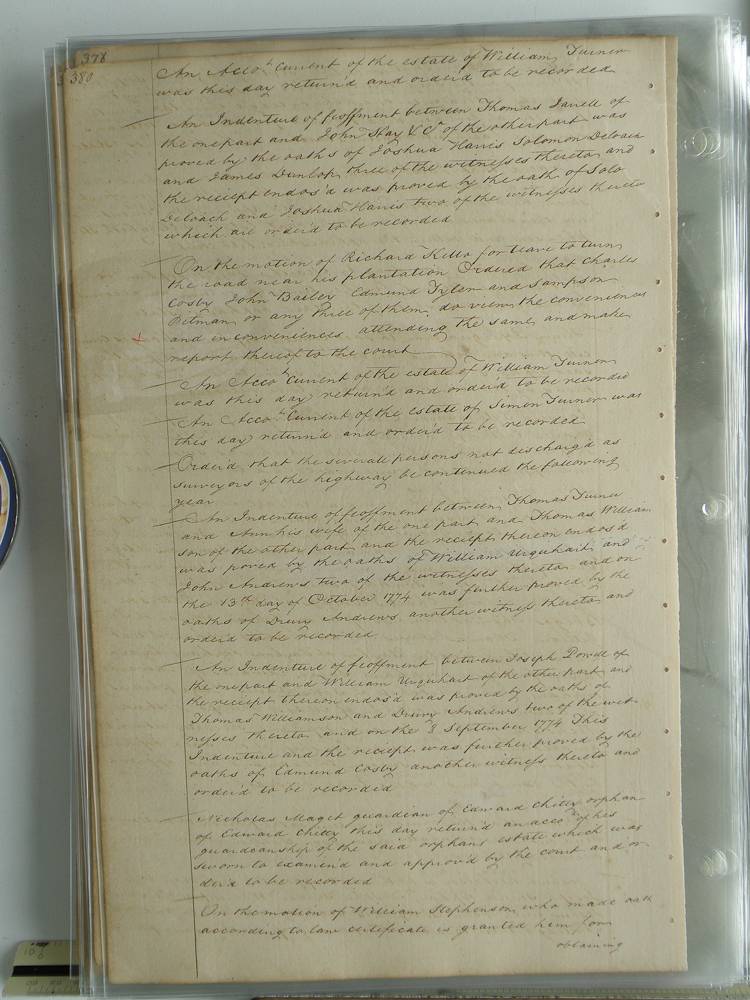 378
380
An Acco.t Current of the estate of William Turner
was this day return'd and order'd to be recorded
An Indenture of feoffment between Thomas Jarrell of
the one part and John Shay &C.a of the other part was
proved by the oaths of Joshua Harris Solomon Deloach
and James Dunlop three of the witnesses thereto and
the receipt endors'd was proved by the oath of Solo
Deloach and Joshua Harris two of the witnesses thereto
which are order'd to be recorded
On the motion of Richard Kello for leave to turn
the road near his plantation Ordered that Charles
Cosby John Bailey Edmund Tyler and Sampson
Pitman or any three of them do view the conveniences
and inconveniences attending the same and make
report thereof to the court
An Acco.t Current of the estate of William Turner
was this day return'd and order'd to be recorded
An Acco.t Current of the estate of Simon Turner was
this day return'd and order'd to be recorded
Order'd that the severall persons not discharg'd as
surveyors of the highway be continued the following
year
An Indenture of feoffment between Thomas Turner
and Ann his wife of the one part and Thomas William
son of the other part and the receipt thereon endos'd
was proved by the oaths of William Urquhart and
John Andrews two of the witnesses thereto and on
the 13th day of October 1774 was further proved by the
oaths of Drury Andrews another witness thereto and
order'd to be recorded
An Indenture of feoffment between Joseph Powell of
the one part and William Urquhart of the other part and
the receipt thereon endos'd was proved by the oaths of
Thomas Williamson and Drury Andrews two of the wit-
nesses thereto and on the 8 September 1774 This
Indenture and the receipt was further proved by the
oaths of Edmund Cosby another witness thereto and
order'd to be recorded
Nicholas Maget guardian of Edward Chitty orphan
of Edward Chitty this day return'd an acco.t of his
guardianship of the said orphans estate which was
sworn to examin'd and approv'd by the court and or
der'd to be recorded
On the motion of William Stephenson who made oath
according to law certificate is granted him for
obtaining